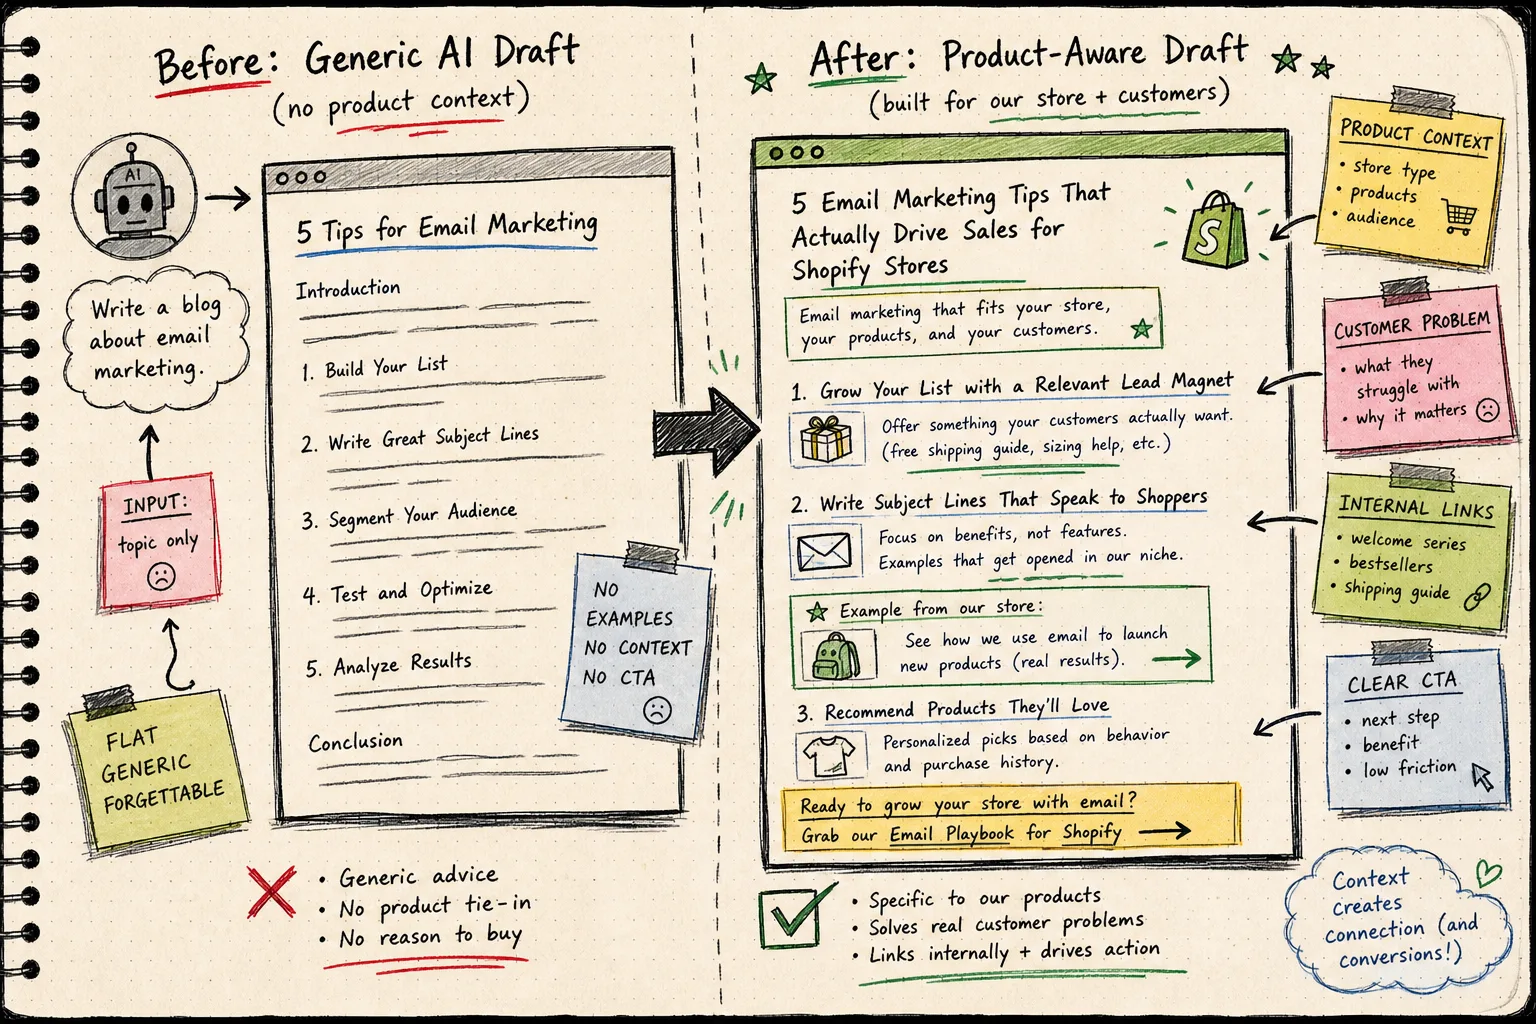 Before: Generic AI Draft
(no product context)
AI
Write a blog
about email
marketing.
INPUT:
topic only
FLAT
GENERIC
FORGETTABLE
5 Tips for Email Marketing
Introduction
1. Build Your List
2. Write Great Subject Lines
3. Segment Your Audience
4. Test and Optimize
5. Analyze Results
Conclusion
NO
EXAMPLES
NO CONTEXT
NO CTA
• Generic advice
• No product tie-in
• No reason to buy
After: Product-Aware Draft
(built for our store + customers)
5 Email Marketing Tips That
Actually Drive Sales for
Shopify Stores
S
Email marketing that fits your store,
your products, and your customers.
1. Grow Your List with a Relevant Lead Magnet
Offer something your customers actually want.
(free shipping guide, sizing help, etc.)
2. Write Subject Lines That Speak to Shoppers
Focus on benefits, not features.
Examples that get opened in our niche.
Example from our store:
See how we use email to launch
new products (real results).
3. Recommend Products They'll Love
Personalized picks based on behavior
and purchase history.
Ready to grow your store with email?
Grab our Email Playbook for Shopify
• Specific to our products
• Solves real customer problems
• Links internally + drives action
PRODUCT CONTEXT
• store type
• products
• audience
CUSTOMER PROBLEM
• what they
struggle with
• why it matters
INTERNAL LINKS
• welcome series
• bestsellers
• shipping guide
CLEAR CTA
• next step
• benefit
• low friction
Context
creates
connection (and
conversions!)